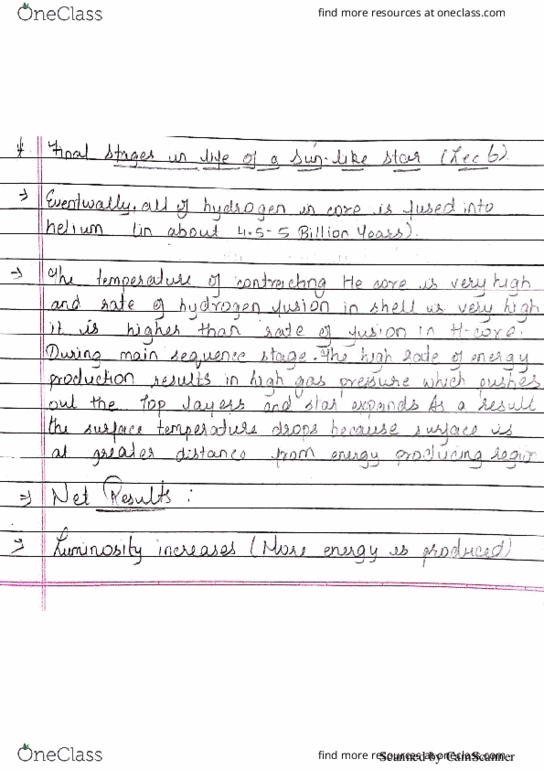 OneClass
find more resources at oneclass.com
* Final stages in life of a Sun-like star (Lec 6).
→ Eventually, all of hydrogen in core is fused into
helium (in about 4.5-5 Billion Years).
→ The temperature of contracting He core is very high
and rate of hydrogen fusion in shell is very high
it is higher than rate of fusion in H-core.
During main sequence stage. The high rate of energy
production results in high gas pressure which pushes
out the Top layers and star expands As a result
the surface temperature drops because surface is
at greater distance from energy producing region
⇒ Net Results :
→ Luminosity increases (More energy is produced)
OneClass
find more resources at oneclass.com
Scanned by CamScanner